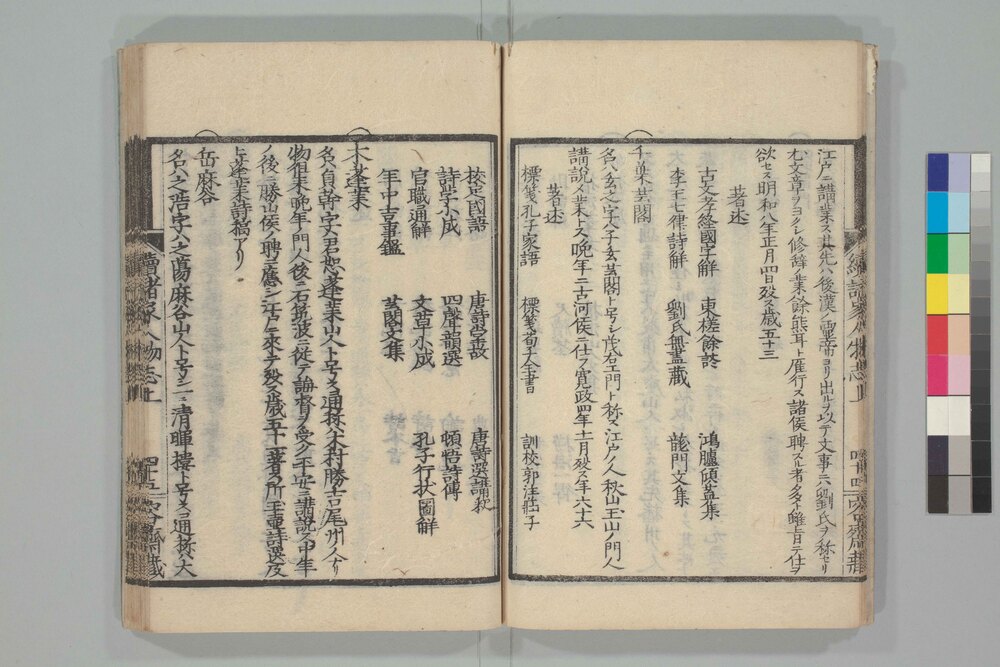 江戸ニ講業ス其先ハ後漢ノ靈帝ヨリ出ルヲ以テ文事ニハ劉氏ヲ称セリ
尤文章ヲヨクシ修辞ノ業餘熊耳ト雁行ス諸侯聘スル者多シト雖トモ仕ヲ
欲セス明和八年正月四日殁ス歳五十三
著述
古文孝經國字解 東槎餘談 鴻臚傾蓋集
李王七律詩解 劉氏無盡藏 龍門文集
千葉芸閣
名ハ玄之字ハ子玄芸閣ト号シ茂右エ門ト称ス江戸ノ人秋山玉山ノ門人
講説ヲ業トス晩年ニ古河侯ニ仕フ寛政四年十一月殁ス年六十六
著述
標箋孔子家語 標箋荀子全書 訓校郭注莊子
校定國語 唐詩掌故 唐詩選講釈
詩学小成 四聲韻選 頓悟詩傳
官職通解 文章小成 孔子行状圖解
年中吉事鑑 芸閣文集
木蓬莱
名ハ貞幹字ハ君恕蓬莱山人ト号ス通称ハ木村勝吉尾州ノ人ナリ
物徂徠晩年ノ門人後ニ石筑波ニ従テ論督ヲ受ク平安ニ講説ス中年
ノ後ニ勝山侯ノ聘ニ應シ江戸ニ來テ殁ス歳五十一著ス所玉壷詩選及
ヒ蓬莱詩稿アリ
岳麻谷
名ハ之浩字ハ之蕩麻谷山人ト号ス一ニ清暉樓ト号ス通称ハ大
續諸家人物志上